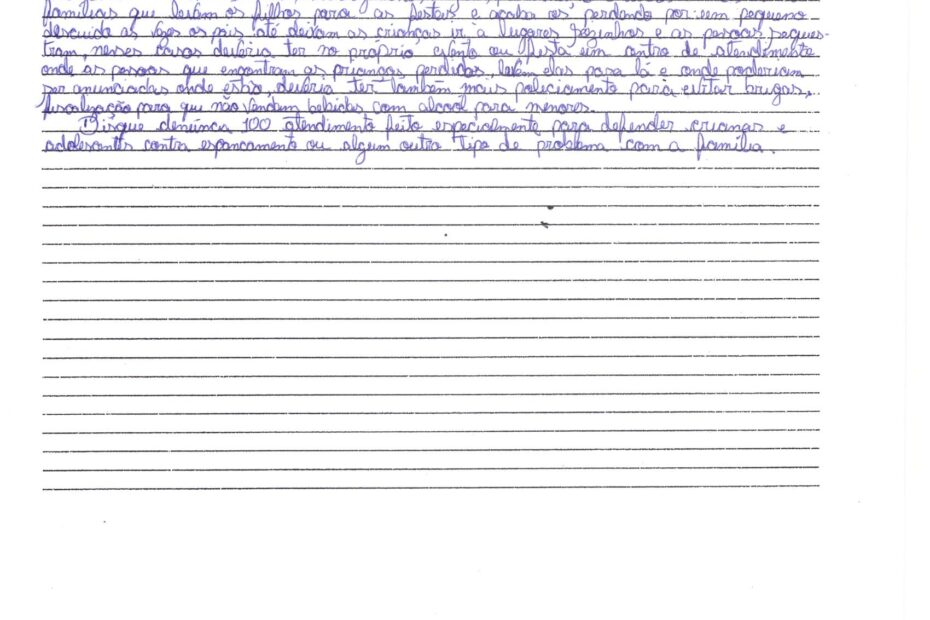 famílias que levam os filhos para as festas e acaba os perdendo por um pequeno
descuido as vezes os pais até deixam as crianças ir a lugares sozinhos e as pessoas seques-
tram, nesses casos deveria ter no próprio evento ou festa um centro de atendimento
onde as pessoas que encontram as crianças perdidas, levem elas para lá e onde poderiam
ser anunciadas onde estão, deveria ter também mais policiamento para evitar brigas,
fiscalização para que não vendam bebidas com alcool para menores.
Disque denúncia 100 atendimento feito especialmente para defender crianças e
adolescentes contra espancamento ou algum outro tipo de problema com a família.